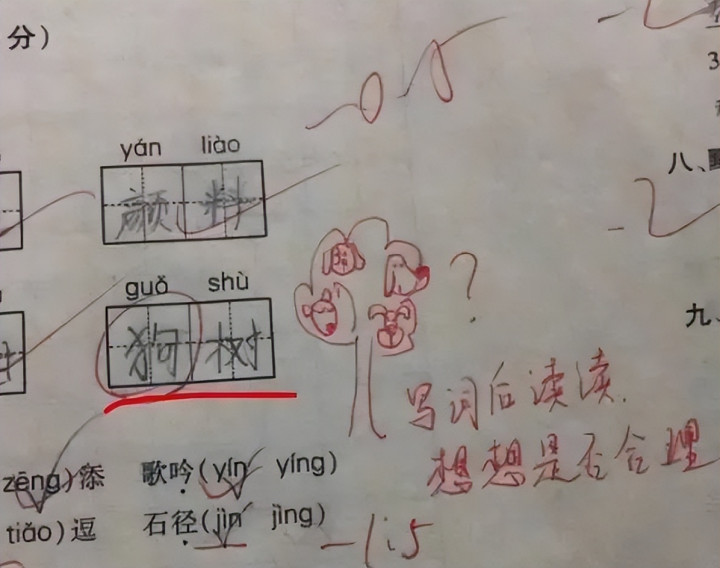 分）
yán liào
颜料
八、
guǒ shù
狗树
?
九、
写词后读读.
想想是否合理
zēng)添 歌吟(yín yíng)
tiǎo)逗 石径(jìn jìng)
-1.5